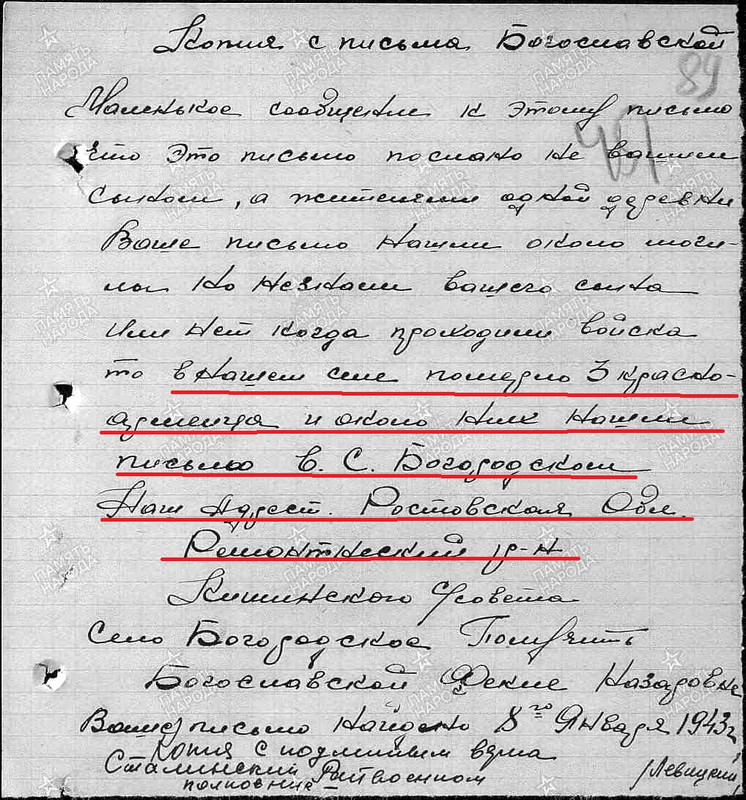 Копия с письма Богославской
89
Маленькое сообщение к этому письмо
что это письмо послано не вашем
сыном, а жителями одной деревни
Ваше письмо нашли около моги-
лы но незнаем вашего сына
Или нет когда проходили войска
то в нашем селе померло 3 красно-
армейца и около них нашли
письмо в. С. Богородском
Наш Адрест. Ростовская Обл.
Ремонтнеский р-н
Кишинского с/совета
Село Богородское Получить
Богославской Фекле Назаровне
Ваше письмо найдено 8го Января 1943г
Копия с подлинным верна
Сталинский Райвоенком
полковник —
/Левицкий/
ПАМЯТЬ НАРОДА